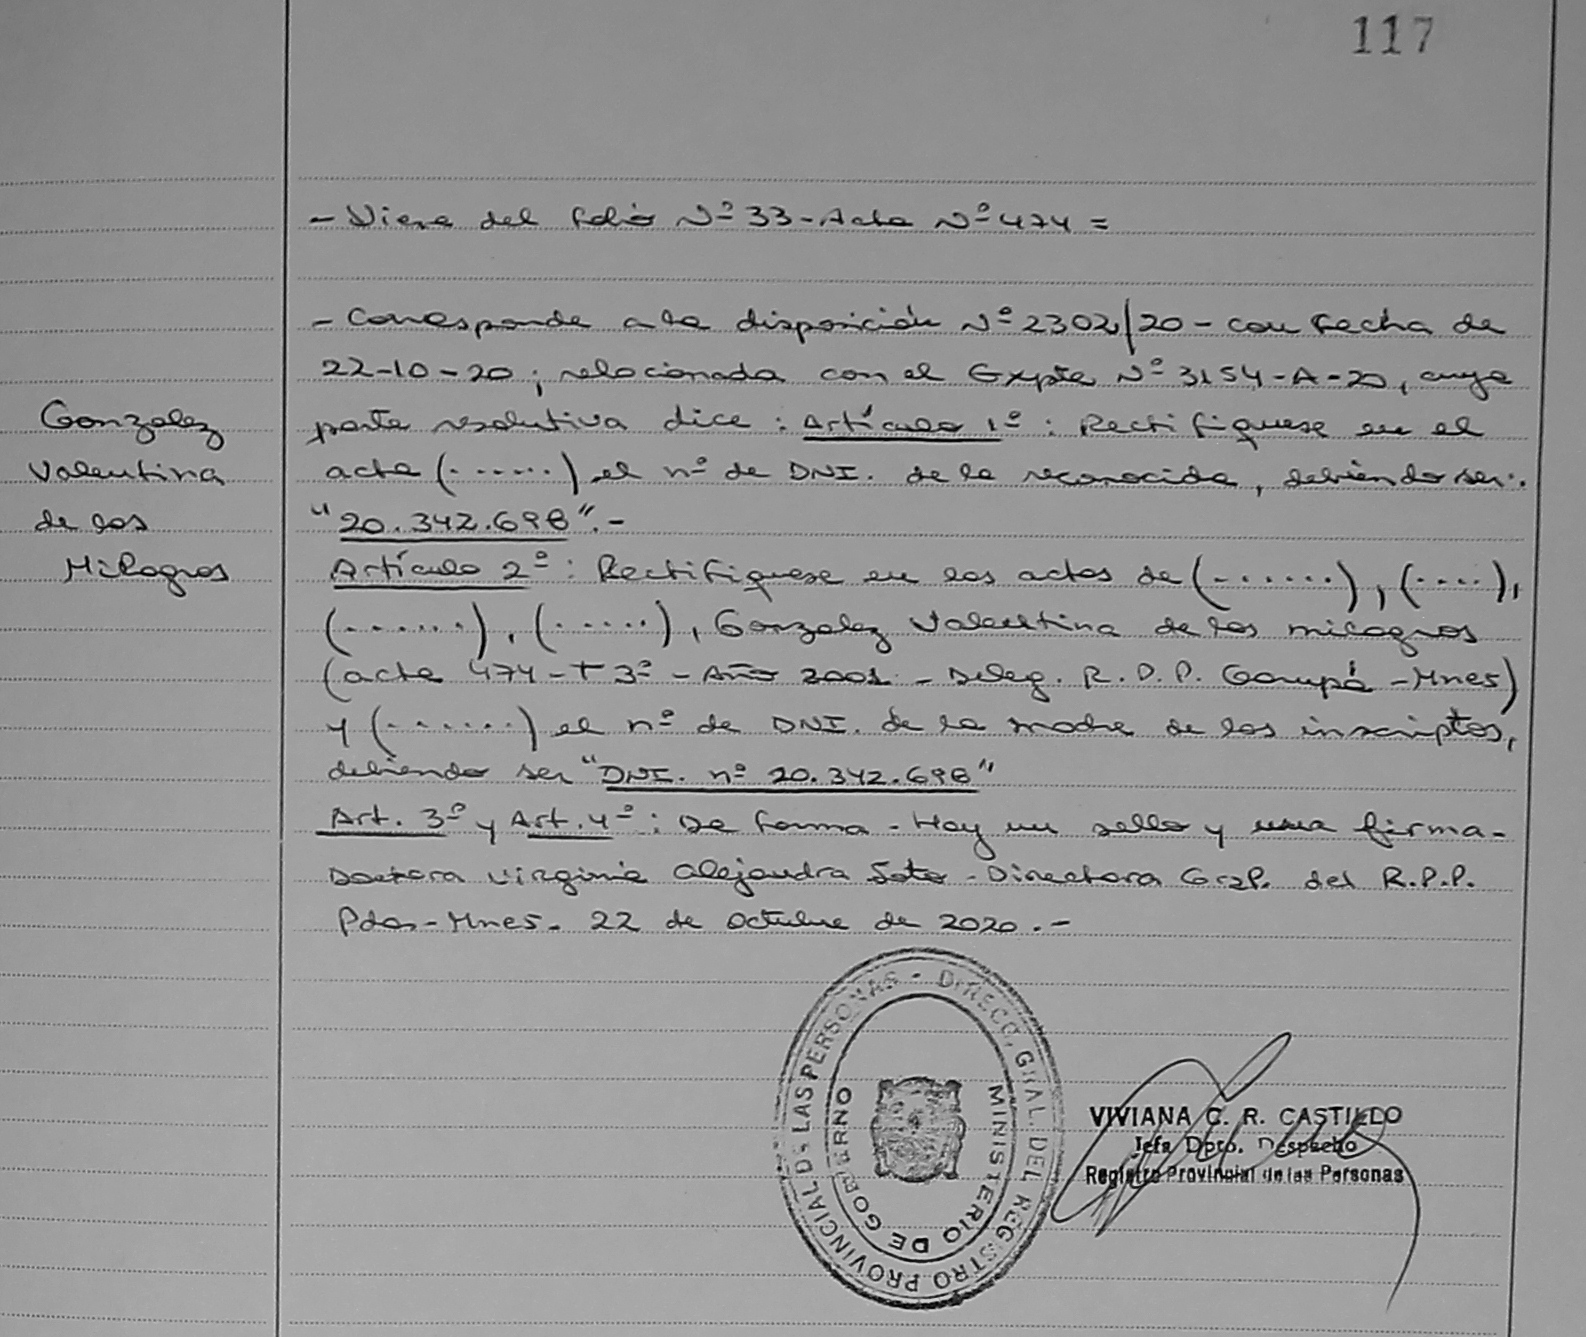 117
- Viene del folio Nº 33 - Acta Nº 474 =
- Corresponde a la disposición Nº 2302/20 - con fecha de
22-10-20; relacionada con el Expte Nº 3154-A-20, cuya
parte resolutiva dice : Artículo 1º : Rectifiquese en el
acta (.......) el nº de DNI. de la reconocida, debiendo ser:
"20.342.698".-
Artículo 2º : Rectifiquese en las actas de (.......), (....),
(.......), (.....), Gonzalez Valentina de los milagros
(acta 474 - T 3º - Año 2001 - Deleg. R.P.P. Garupá - Mnes)
y (.......) el nº de DNI. de la madre de los inscriptos,
debiendo ser "DNI. nº 20.342.698"
Art. 3º y Art. 4º : De forma - Hay un sello y una firma -
Doctora Virginia Alejandra Soto - Directora Gral. del R.P.P.
Pdas - Mnes. 22 de octubre de 2020.-
Gonzalez
Valentina
de los
Milagros
DIRECC. GRAL. DEL REGISTRO PROVINCIAL DE LAS PERSONAS -
MINISTERIO DE GOBIERNO
VIVIANA G. R. CASTILLO
Jefa Dpto. Despacho
Registro Provincial de las Personas